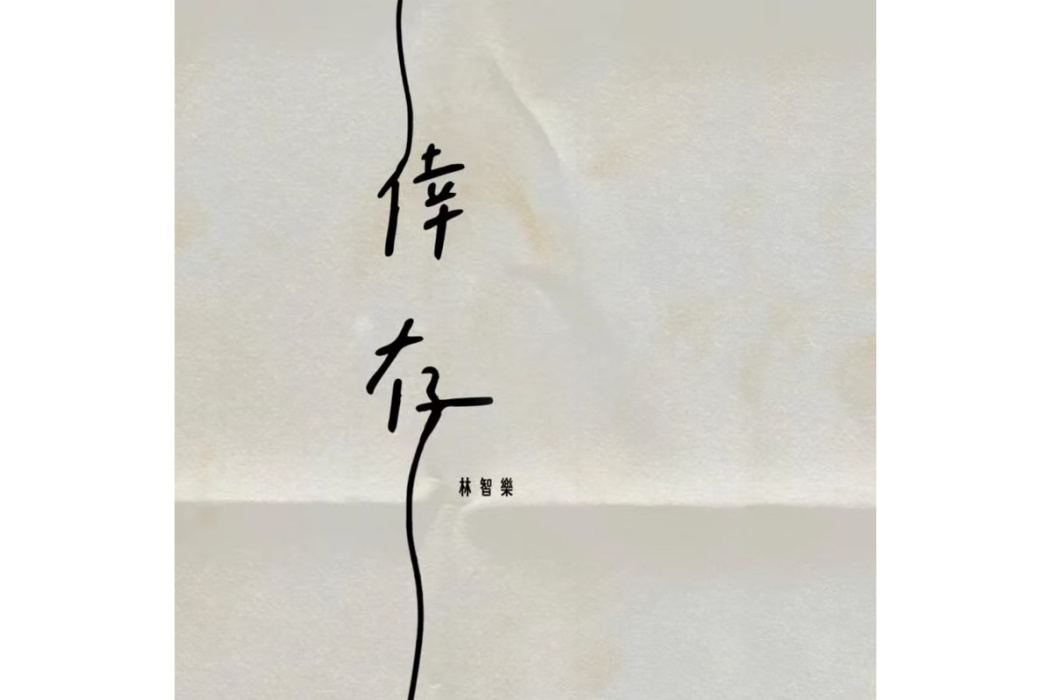 倖存
林智樂